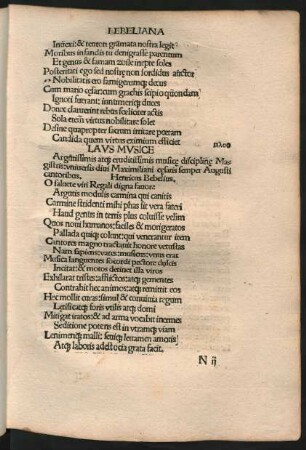 BEBELIANA
Inficeti: & tetrico gramata nostra legit
Moribus infandis tu denigrasse parentum
Et genus & famam zoile inepte soles
Posteritati ego sed nostræ non sordidus auctor
Nobilitatis ero famigerumq; decus
Cum mario cesareum grachis scipio quondam
Ignoti fuerant: innumeriq; duces
Donec clauerint rebus feoliciter actis
Sola etenim virtus nobilitare solet
Desine quapropter sacrum irritare poetam
Candida quem virtus eximium efficiet
LAVS MVSICE
Argutissimis atq; eruditissimis musice discipline Ma-
gistris: vniuersis diui Maximiliani cesaris semper Augusti
cantoribus. Henricus Bebelius.
O saluete viri Regali digna fauore
Argutis modulis carmina qui canitis
Carmine stridenti mihi phas sit vera fateri
Haud gentis in terris plus coluisse velim
Quos nouit humanos: faciles & morigeratos
Pallada quiq; colant: qui venerantur item
Cantores magno mactauit honore vetustas
Nam sapiens: vates: musicus: vnus erat
Musica languentes socordi pectore: dulcis
Incitat: & motos detinet illa viros
Exhilarat tristes: afflictos: atq; gementes
Contrahit hec animos: atq; remittit eos
Hec mollit curas: simul & conuiuia regum
Letificatq; foris vtilis atq; domi
Mitigat iratos: & ad arma vocabit inermes
Seditione potens est in vtramq; viam
Lenimenq; mali: seuiq; leuamen amoris
Atq; laboris adest ocia grata facit.
N ij